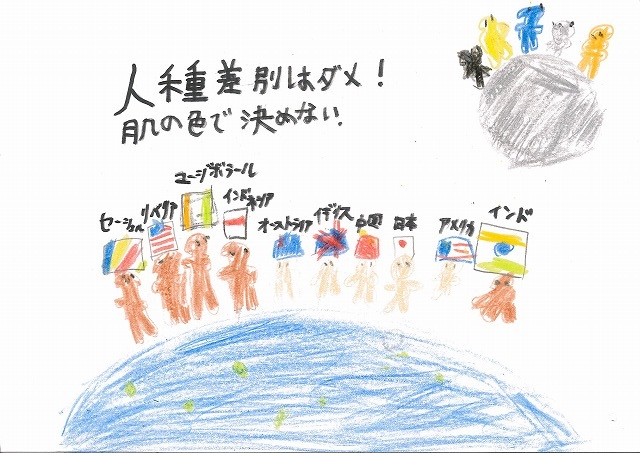 人種差別はダメ!
肌の色で決めない.
セーシェル
リベリア
インドネシア
オーストラリア
イギリス
中国
日本
アメリカ
インド